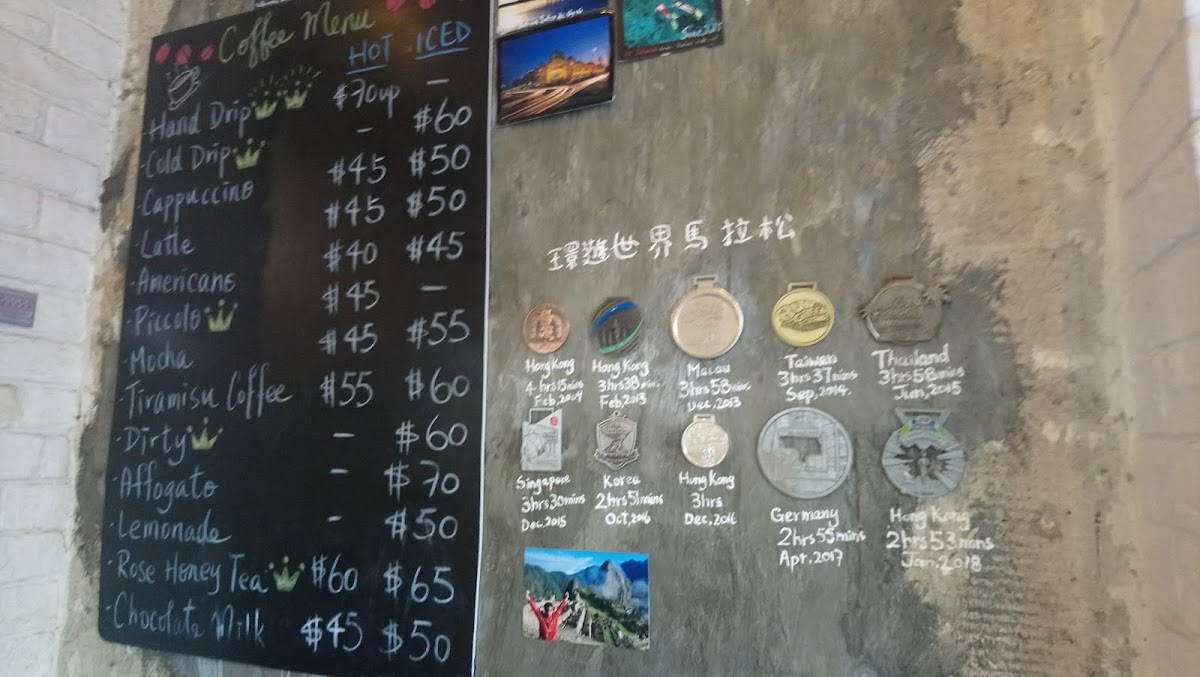 Coffee Menu
HOT ICED
· Hand Drip $70up –
· Cold Drip – $60
· Cappuccino $45 $50
· Latte $45 $50
· Americano $40 $45
· Piccolo $45 –
· Mocha $45 $55
· Tiramisu Coffee $55 $60
· Dirty – $60
· Affogato – $70
· Lemonade – $50
· Rose Honey Tea $60 $65
· Chocolate Milk $45 $50
環遊世界馬拉松
Hong Kong
4 hrs 15mins
Feb,
Hong Kong
3hrs38mins
Feb,2013
Macau
3hrs58mins
Dec,2013
Taiwan
3hrs37mins
Sep,2014.
Thailand
3hrs58mins
Jun,2015
Singapore
3hrs30mins
Dec,2015
Korea
2hrs51mins
Oct,2016
Hong Kong
3hrs
Dec,2016
Germany
2hrs55mins
Apr,2017
Hong Kong
2hrs53mins
Jan,2018